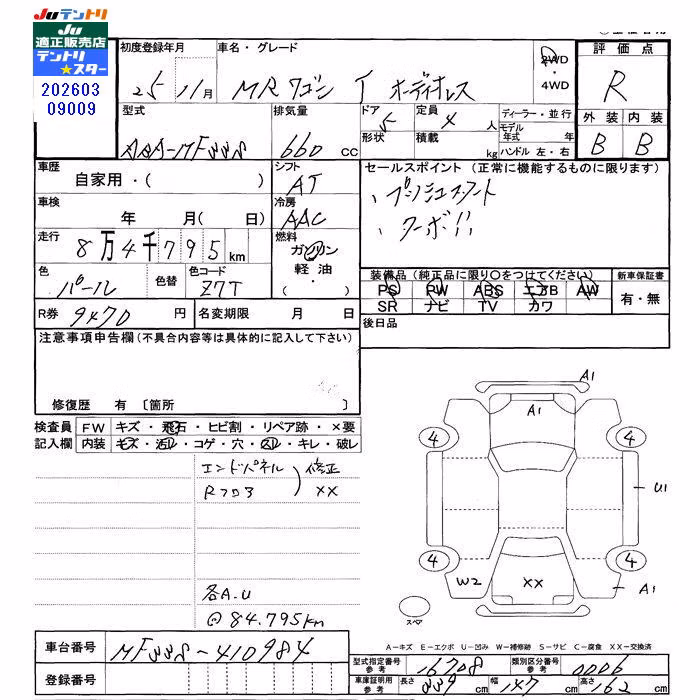 JUテントリ
JU
適正販売店
テントリ
★スター
202603
09009
初度登録年月
25年11月
車名・グレード
MRワゴン T オーディオレス
2WD
・
4WD
評価点
R
外装 内装
B B
型式
AAA-MF33S
排気量
660 CC
ドア 5
形状
定員 4 人
積載 kg
ディーラー・並行
モデル年式 年
ハンドル 左・右
車歴
自家用・( )
シフト
AT
セールスポイント(正常に機能するものに限ります)
、プッシュスタート
、ターボ!!
車検
年 月( 日)
冷房
AAC
走行
8万4千795km
燃料
ガソリン
軽油・
( )
色
パール
色替
色コード
Z7T
装備品(純正品に限り○をつけてください)
PS PW ABS エアB AW
SR ナビ TV カワ
新車保証書
有・無
R券 9470円
名変期限 月 日
後日品
注意事項申告欄(不具合内容等は具体的に記入して下さい)
修復歴 有〔箇所 〕
検査員 FW キズ・飛石・ヒビ割・リペア跡・×要
記入欄 内装 キズ・汚レ・コゲ・穴・スレ・キレ・破レ
エンドパネル
Rフロア
修正
××
各A.U
@84.795km
A1
A1
4
4
U1
4
4
W2
××
A1
スペア
A-キズ E-エクボ U-凹み W-補修跡 S-サビ C-腐食 XX-交換済
車台番号 MF33S-410984
登録番号
型式指定番号 参考 16708
類別区分番号 参考 0006
車庫証明用 参考 長さ 339cm 幅 147cm 高さ 162cm